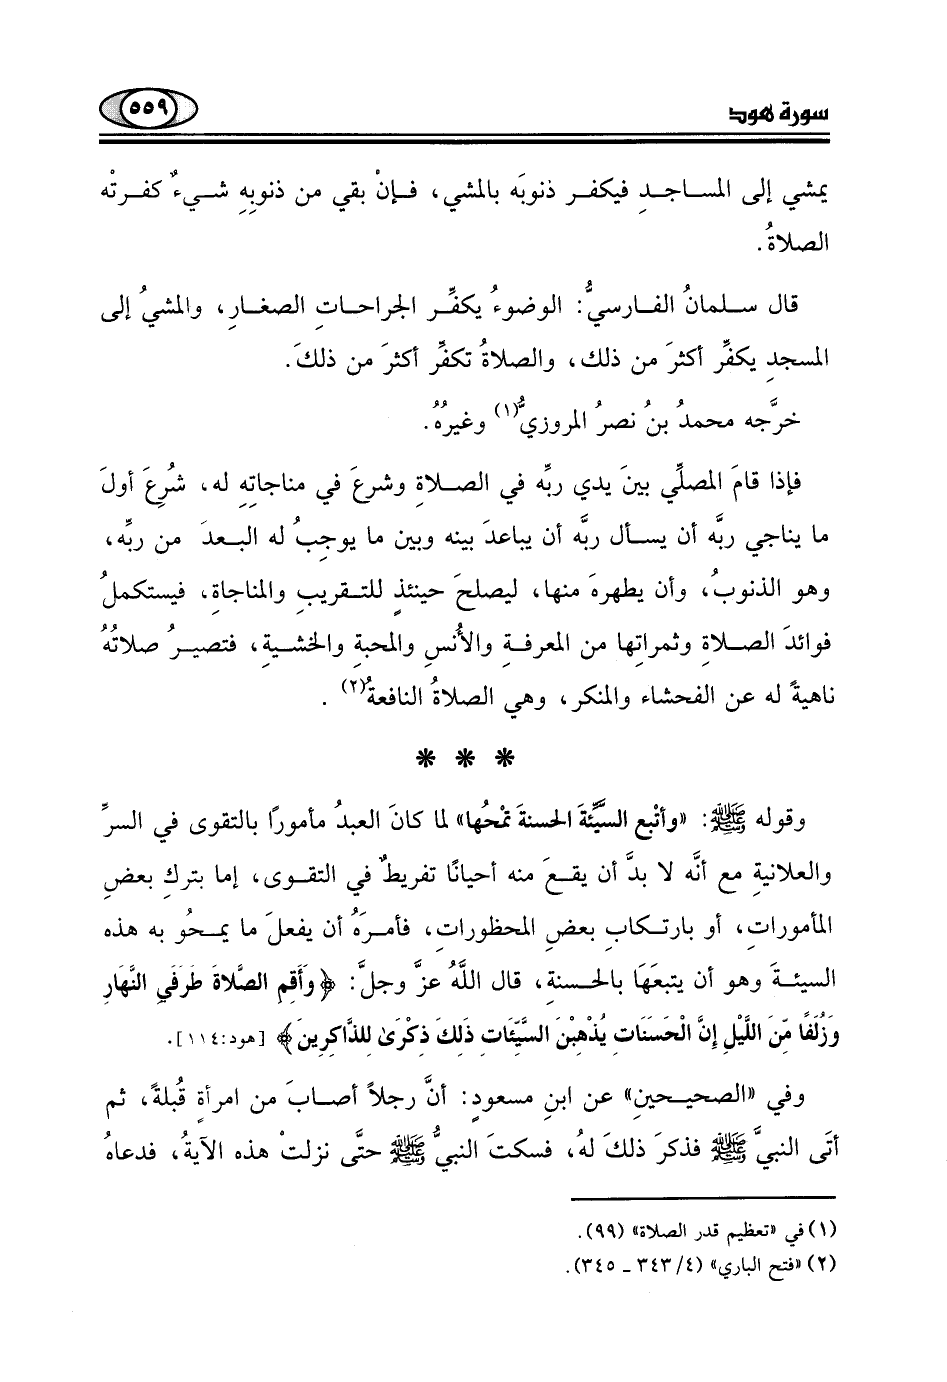 سورة هود
٥٥٩
يمشي إلى المساجدِ فيكفر ذنوبَه بالمشي، فإنْ بقي من ذنوبِهِ شيءٌ كفرتْه
الصلاةُ.
قال سلمانُ الفارسيُّ: الوضوءُ يكفِّر الجراحاتِ الصغارِ، والمشيُ إلى
المسجدِ يكفِّر أكثرَ من ذلك، والصلاةُ تكفِّر أكثرَ من ذلكَ.
خرَّجه محمدُ بنُ نصرُ المروزيُّ(١) وغيرُهُ.
فإذا قامَ المصلِّي بينَ يدي ربِّه في الصلاةِ وشرعَ في مناجاتِهِ له، شُرِعَ أولَ
ما يناجي ربَّه أن يسأل ربَّه أن يباعدَ بينه وبين ما يوجبُ له البعدَ من ربِّه،
وهو الذنوبُ، وأن يطهرهَ منها، ليصلحَ حينئذٍ للتقريبِ والمناجاةِ، فيستكملُ
فوائدَ الصلاةِ وثمراتِها من المعرفةِ والأُنسِ والمحبةِ والخشيةِ، فتصيرُ صلاتُهُ
ناهيةً له عن الفحشاء والمنكر، وهي الصلاةُ النافعةُ(٢) .
* * *
وقوله ﷺ: «وأتْبع السيِّئةَ الحسنةَ تمْحُها» لما كانَ العبدُ مأمورًا بالتقوى في السرِّ
والعلانيةِ مع أنَّه لا بدَّ أن يقعَ منه أحيانًا تفريطٌ في التقوى، إما بتركِ بعضِ
المأموراتِ، أو بارتكابِ بعضِ المحظوراتِ، فأمرَهُ أن يفعلَ ما يمحُو به هذه
السيئةَ وهو أن يتبعَهَا بالحسنةِ، قال اللَّهُ عزَّ وجلَّ: ﴿وَأَقِمِ الصَّلاةَ طَرَفَيِ النَّهَارِ
وَزُلَفًا مِّنَ اللَّيْلِ إِنَّ الْحَسَنَاتِ يُذْهِبْنَ السَّيِّئَاتِ ذَلِكَ ذِكْرَىٰ لِلذَّاكِرِينَ﴾ [هود:١١٤].
وفي «الصحيحينِ» عن ابنِ مسعودٍ: أنَّ رجلاً أصابَ من امرأةٍ قُبلةً، ثم
أتَى النبيَّ ﷺ فذكرَ ذلكَ لهُ، فسكتَ النبيُّ ﷺ حتَّى نزلتْ هذه الآيةُ، فدعاهُ
(١) في «تعظيم قدر الصلاة» (٩٩).
(٢) «فتح الباري» (٤/ ٣٤٣ ـ ٣٤٥).